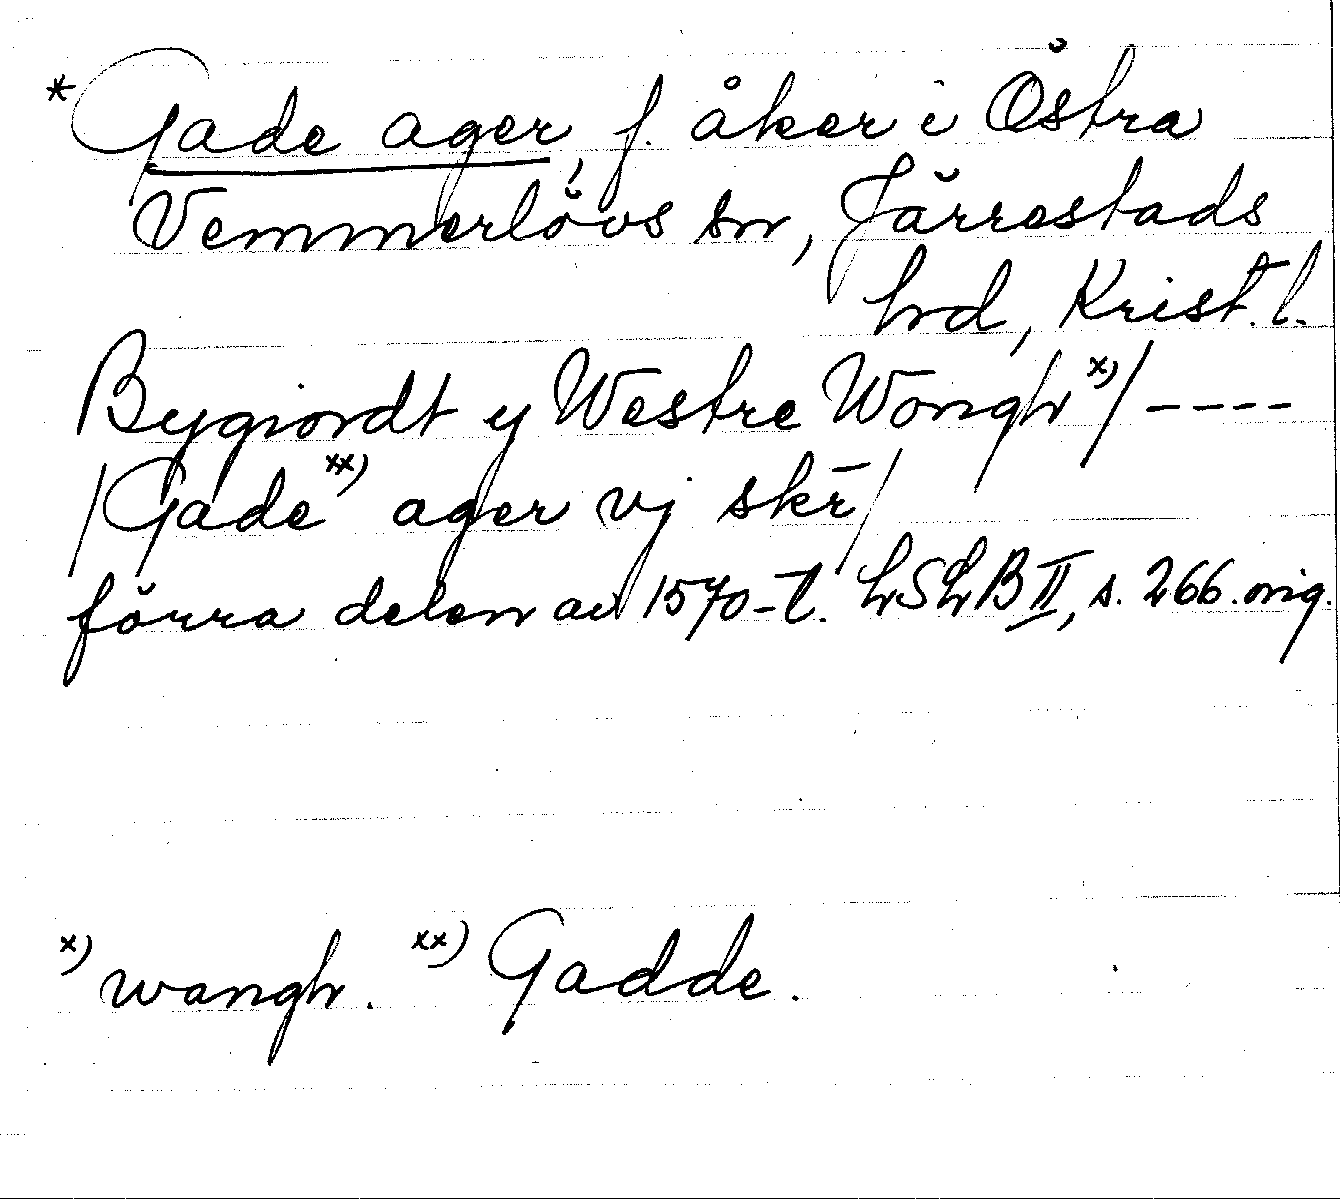 * Gade ager, f. åker i Östra
Vemmerlövs sn, Järrestads
hrd, Krist. l.
Bygiordt y Westre Wongh x) / ----
/ Gade xx) ager vj skr̄ /
förra delen av 1570-t. LSLB II, s. 266. orig.
x) wangh. xx) Gadde.